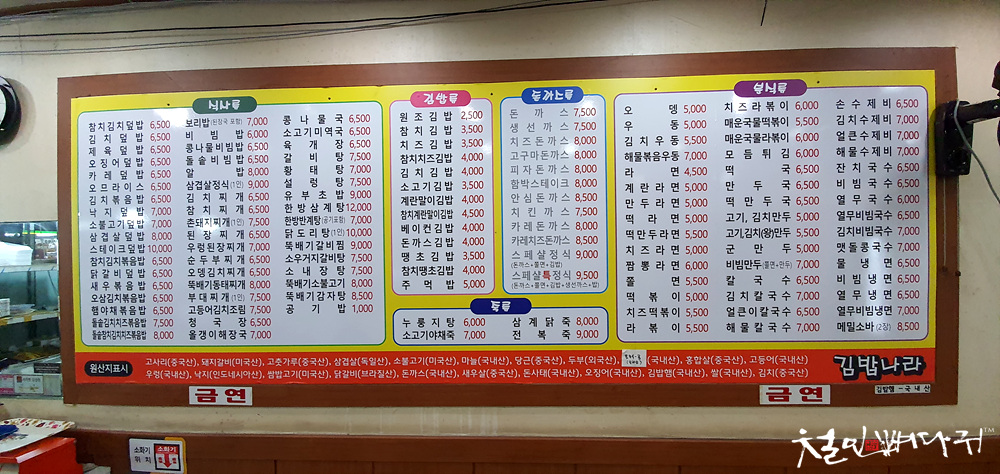 식사류
참치김치덮밥 6,500
김치덮밥 6,500
제육덮밥 6,500
오징어덮밥 6,500
카레덮밥 6,500
오므라이스 6,500
김치볶음밥
낙지덮밥 7,000
소불고기덮밥 7,000
삼겹살덮밥 8,000
스테이크덮밥 10,000
닭갈비덮밥
새우볶음밥
오삼김치볶음밥
햄야채볶음밥
돌솥김치치즈볶음밥 7,500
돌솥참치김치치즈볶음밥 8,000
보리밥(된장국 포함) 7,000
비빔밥 6,000
콩나물비빔밥 6,500
돌솥비빔밥 6,500
알밥 8,000
삼겹살정식(1인) 9,000
김치찌개 6,500
참치찌개 6,500
촌돼지찌개(1인) 7,500
된장찌개 6,500
우렁된장찌개 7,000
순두부찌개 6,500
오뎅김치찌개 6,500
뚝배기동태찌개 8,000
부대찌개(1인) 7,500
고등어김치조림 7,500
청국장 6,500
올갱이해장국 7,000
콩나물국 6,500
소고기미역국 6,500
육개장 6,500
갈비탕 7,500
황태탕 7,500
설렁탕 7,500
유부초밥 9,000
한방삼계탕 12,000
한방반계탕(공기포함) 7,000
닭도리탕(1인) 10,000
뚝배기갈비찜 9,000
소우거지갈비탕 7,500
소내장탕 7,500
뚝배기소불고기 8,000
뚝배기감자탕 8,500
공기밥 1,000
김밥류
원조김밥 2,500
참치김밥 3,500
치즈김밥 3,500
참치치즈김밥 4,000
김치김밥 4,000
소고기김밥 3,500
계란말이김밥 4,000
참치계란말이김밥 4,500
베이컨김밥 4,000
돈까스김밥 4,000
땡초김밥 3,500
참치땡초김밥 4,000
주먹밥 5,000
돈까스류
돈까스 7,500
생선까스 7,500
치즈돈까스 8,000
고구마돈까스 8,000
피자돈까스 8,000
함박스테이크 8,000
안심돈까스 8,500
치킨까스 7,500
카레돈까스 8,000
카레치즈돈까스 8,500
스페샬정식 9,000
(돈까스+쫄면+김밥)
스페샬특정식 9,500
(돈까스+쫄면+김밥+생선까스+밥)
죽류
누룽지탕 6,000
소고기야채죽 7,000
삼계닭죽 8,000
전복죽 9,000
분식류
오뎅 5,000
우동 5,000
김치우동 5,500
해물볶음우동 7,000
라면 4,500
계란라면 5,000
만두라면 5,000
떡라면 5,000
떡만두라면 5,500
치즈라면 5,000
짬뽕라면 6,000
쫄면 5,500
떡볶이 5,000
치즈떡볶이 5,500
라볶이 5,500
치즈라볶이 6,000
매운국물떡볶이 6,000
매운국물라볶이 6,000
모듬튀김 6,000
떡국 6,500
만두국 6,500
떡만두국 6,500
고기,김치만두 5,500
고기김치(왕)만두 5,500
군만두 5,500
비빔만두(쫄면+만두) 7,000
칼국수 6,000
김치칼국수 7,000
얼큰칼국수 6,500
해물칼국수 7,000
손수제비 6,500
김치수제비 6,500
얼큰수제비 6,500
해물수제비 7,000
잔치국수 6,500
비빔국수 6,500
열무국수 6,500
열무비빔국수 6,500
김치비빔국수 7,000
땡돌콩국수 7,000
물냉면 6,500
비빔냉면 6,500
열무냉면 6,500
열무비빔냉면 7,000
메밀소바(2장) 8,500
원산지표시
고사리(중국산), 돼지갈비(미국산), 고춧가루(중국산), 삼겹살(독일산), 소불고기(미국산), 마늘(국내산), 당근(중국산), 두부(외국산), (국내산), 홍합살(중국산), 고등어(국내산)
우렁(국내산), 낙지(인도네시아산), 쌈밥고기(미국산), 닭갈비(브라질산), 돈까스(국내산), 새우살(중국산), 돈사태(국내산), 오징어(국내산), 김밥햄(국내산), 쌀(국내산), 김치(중국산)
김밥나라
김밥햄-국내산
금연
금연
소화기 위치
소화기
철민빼다귀™